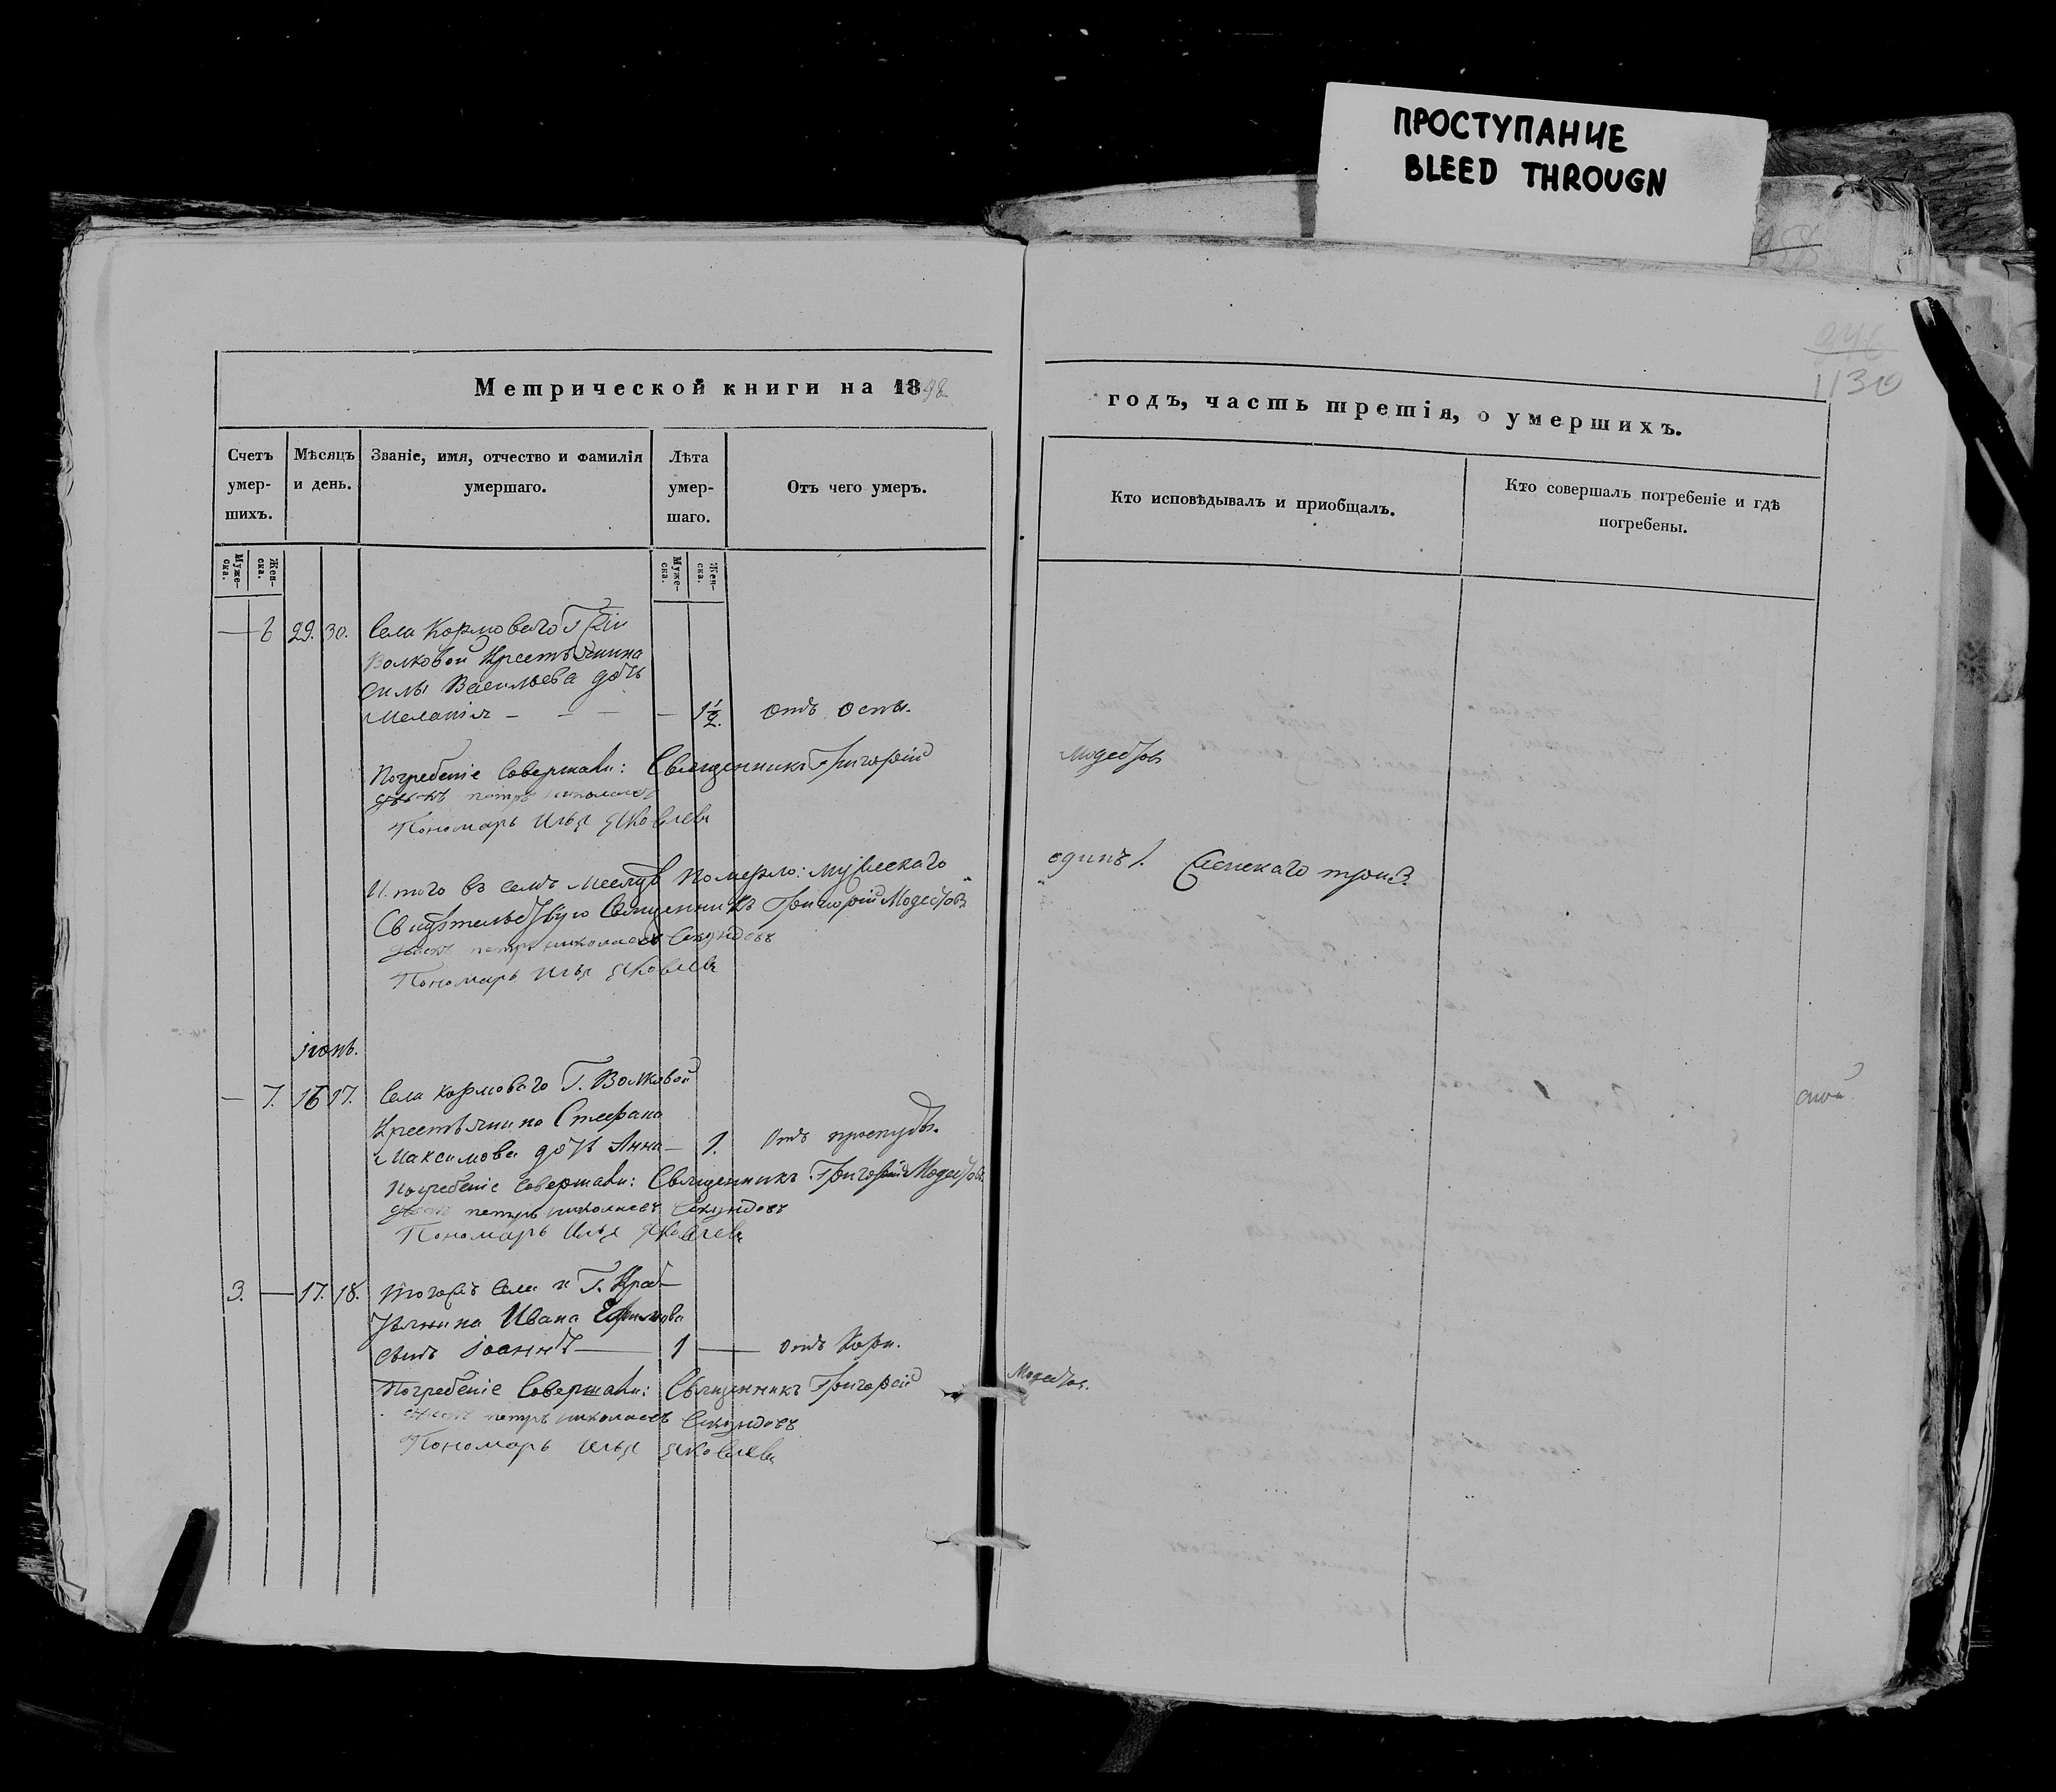 ПРОСТУПАНИЕ
BLEED THROUGN
1130
Метрической книги на 1848
годъ, часть третія, о умершихъ.
Счетъ умер- шихъ.
Мѣсяцъ и день.
Званіе, имя, отчество и фамилія умершаго.
Лѣта умер- шаго.
Отъ чего умеръ.
Кто исповѣдывалъ и приобщалъ.
Кто совершалъ погребеніе и гдѣ погребены.
Муже- ска.
Жен- ска.
Муже- ска.
Жен- ска.
— 6 29. 30. Села Кормоваго Г.
Волковой Крестьянина
Силы Васильева дочь
Меланія — — — — 1½. отъ оспы.
Погребеніе совершали: Священникъ Григорій Модестовъ
дьячекъ петръ николаевъ
Пономарь Илья Яковлевъ
И того въ семъ месяцѣ померло: мужескаго одинъ 1. Женскаго три 3.
Свидѣтельствую Священникъ Григорій Модестовъ
дьячекъ петръ николаевъ Секундовъ
Пономарь Илья Яковлевъ
іюнь.
— 7. 16 17. Села Кормоваго Г. Волковой
Крестьянина Стефана
Максимова дочь Анна — 1. отъ простуды.
Погребеніе совершали: Священникъ Григорій Модестовъ
дьячекъ петръ николаевъ Секундовъ
Пономарь Илья Яковлевъ
3. — 17. 18. Тогожъ села и Г. Крес-
тьянина Ивана Ефимова
сынъ Іоаннъ — 1 — отъ Кори.
Погребеніе совершали: Священникъ Григорій Модестовъ.
дьячекъ петръ николаевъ Секундовъ
Пономарь Илья Яковлевъ